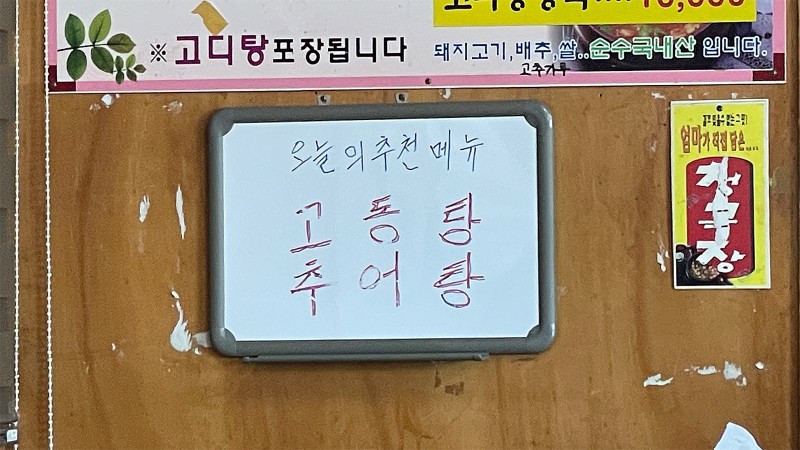 ※고디탕포장됩니다
돼지고기,배추,쌀..순수국내산 입니다.
고추가루
오늘의추천메뉴
고동탕
추어탕
엄마가 직접 담은....
청국장